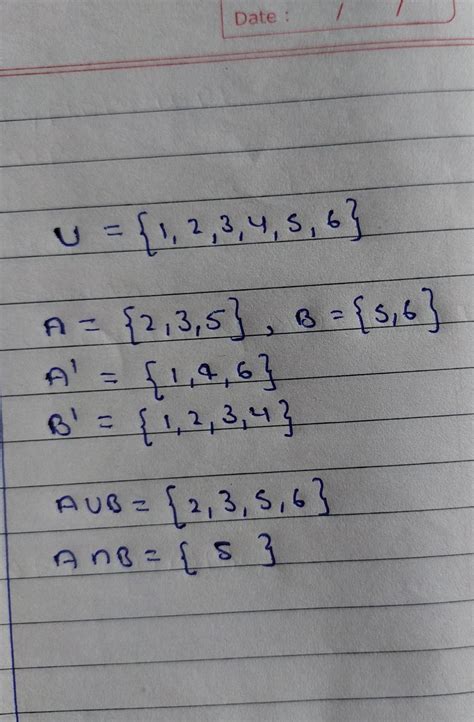 Date : / /
U = {1, 2, 3, 4, 5, 6}
A = {2, 3, 5} , B = {5, 6}
A' = {1, 4, 6}
B' = {1, 2, 3, 4}
A∪B = {2, 3, 5, 6}
A∩B = { 5 }